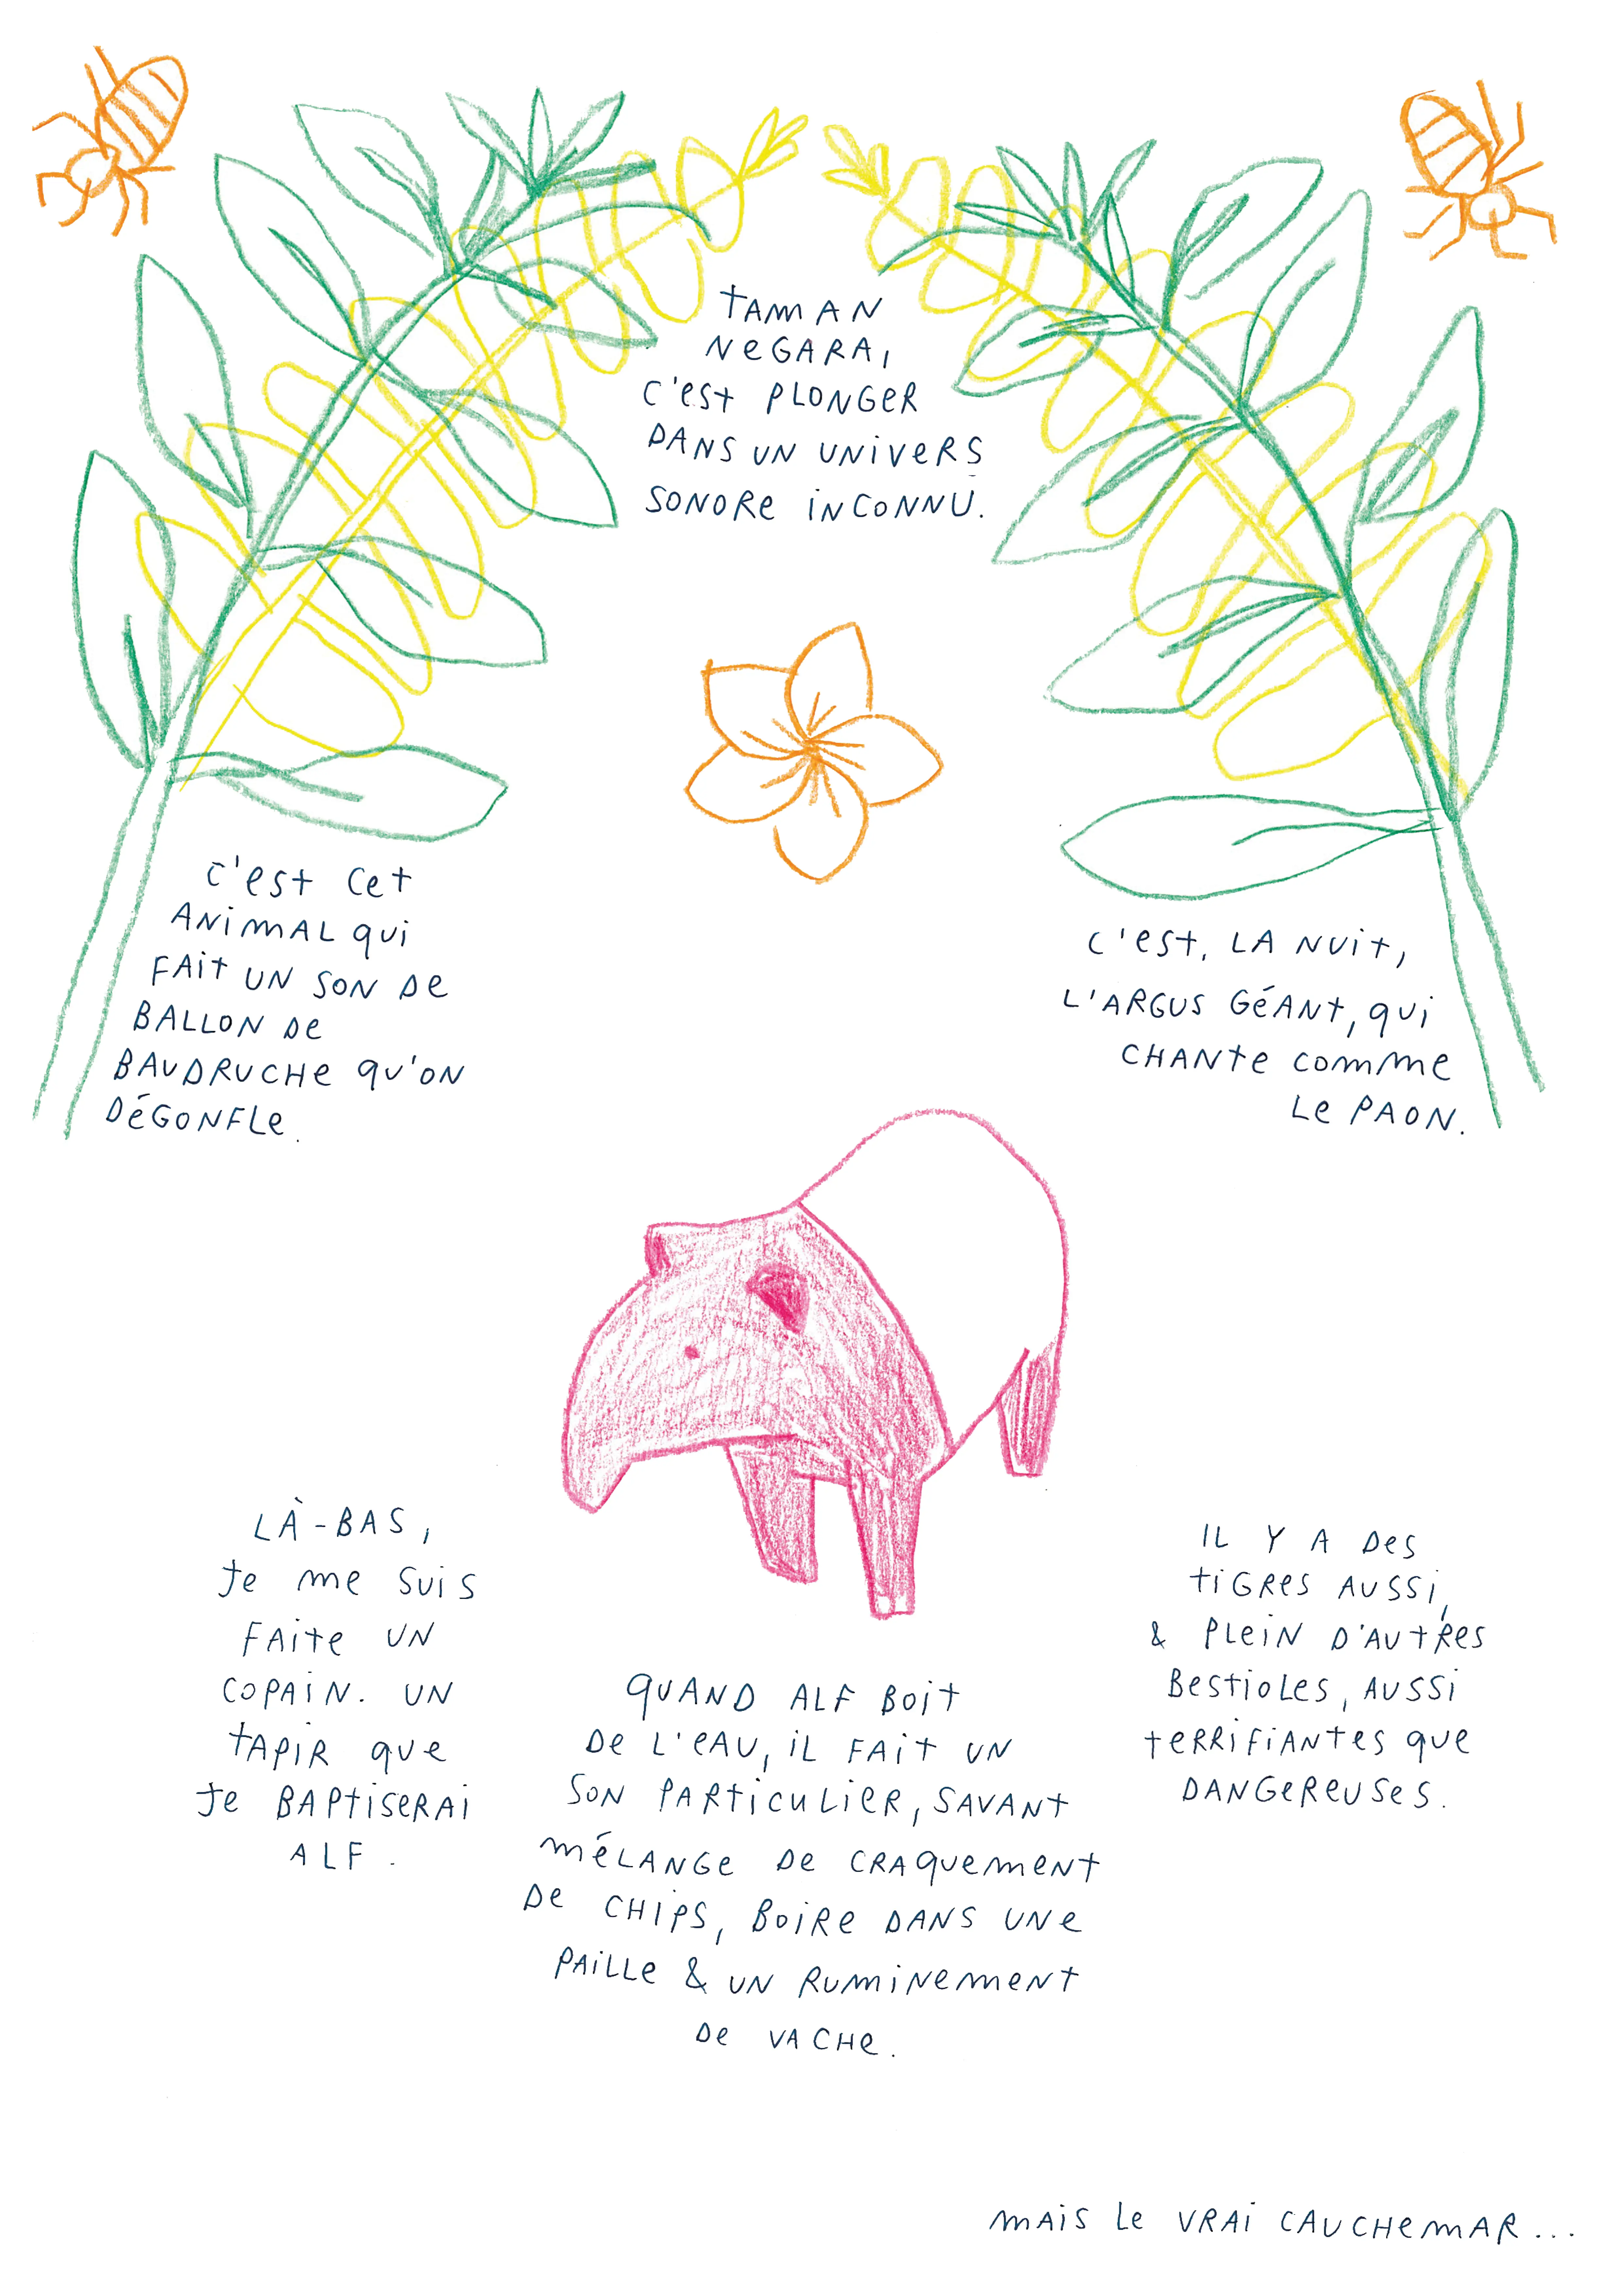 TAMAN
NEGARA,
C'EST PLONGER
DANS UN UNIVERS
SONORE INCONNU.
C'EST CET
ANIMAL QUI
FAIT UN SON DE
BALLON DE
BAUDRUCHE QU'ON
DÉGONFLE.
C'EST, LA NUIT,
L'ARGUS GÉANT, QUI
CHANTE COMME
LE PAON.
LÀ-BAS,
JE ME SUIS
FAITE UN
COPAIN. UN
TAPIR QUE
JE BAPTISERAI
ALF.
QUAND ALF BOIT
DE L'EAU, IL FAIT UN
SON PARTICULIER, SAVANT
MÉLANGE DE CRAQUEMENT
DE CHIPS, BOIRE DANS UNE
PAILLE & UN RUMINEMENT
DE VACHE.
IL Y A DES
TIGRES AUSSI,
& PLEIN D'AUTRES
BESTIOLES, AUSSI
TERRIFIANTES QUE
DANGEREUSES.
MAIS LE VRAI CAUCHEMAR...